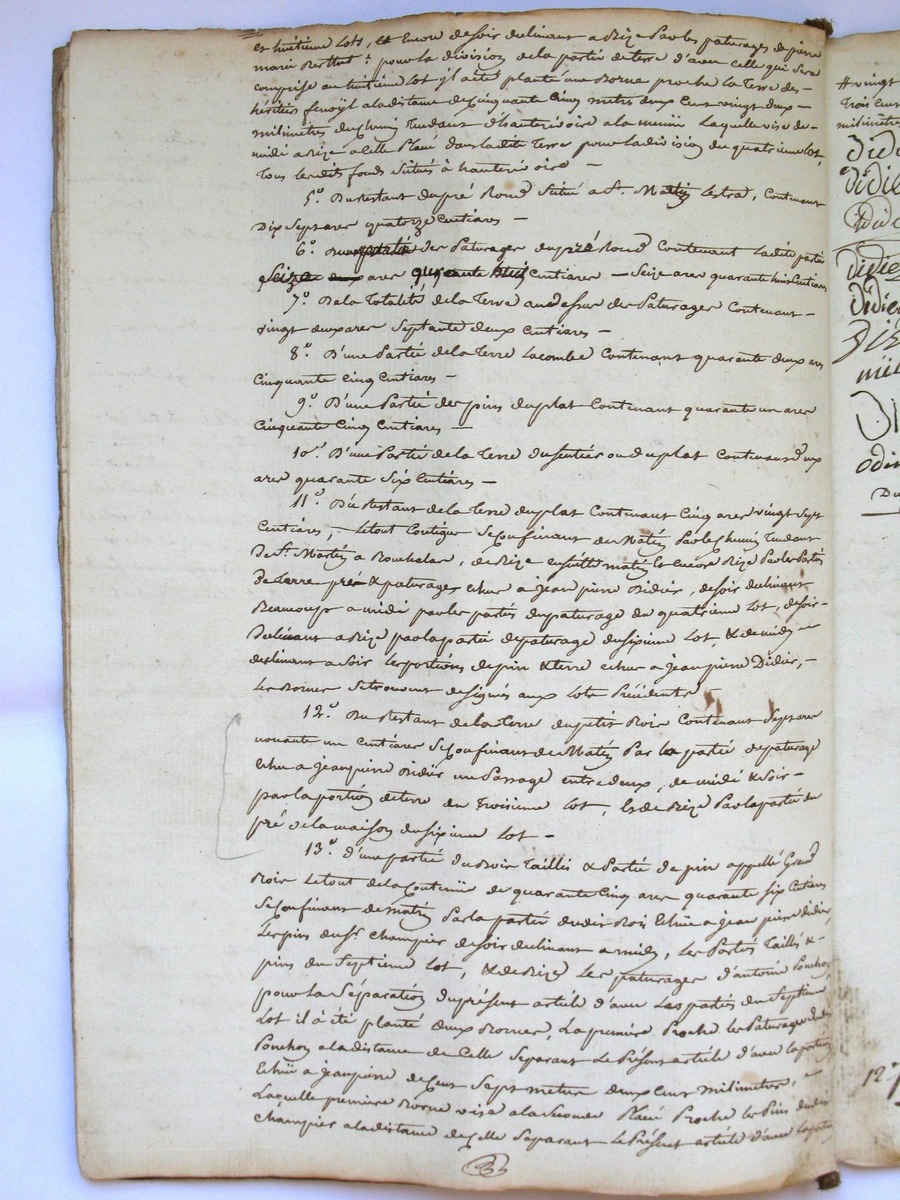 et huitieme Lots, et Encore de soir declinant a Bize Par les paturages de pierre
marie Berthet pour la division de la partie de terre d'avec celle qui sera
comprise au huitieme Lot il a été planté une Borne proche la Terre des
héritiers fenoyl a la distance de Cinquante Cinq metres deux Cent vingt deux
milimetres du chemin Tendant d'hauterivoire a la Laquelle vise de
midi a Bize a Celle Placé dans la dite Terre pour la division du quatrieme Lot,
Tous les dits fonds Situés à hauterivoire —
5°. Du Restant du pré Rond Situé a St. Martin Lestra, Contenant
Dix Sept ares quatorze Centiares —
6°. Du des Paturages du pré Rond Contenant La dite partie
ares Centiares — Seize ares quarante huit Centiares
7°. De la Totalité de la Terre au dessus des Paturages Contenant
vingt deux ares Septante deux Centiares —
8°. D'une Partie de la Terre Lacombe Contenant quarante deux ares
Cinquante Cinq Centiares —
9°. D'une Partie des pins du plat Contenant quarante un ares
Cinquante Cinq Centiares —
10°. D'une Partie de la Terre du Sentier ou du plat Contenant deux
ares quarante Six Centiares —
11°. Du Restant de la Terre du plat Contenant Cinq ares vingt Sept
Centiares, Le tout Contigue Se Confinant de Matin Par le Chemin Tendant
De St. Martin a , de Bize Ensuitte matin et encore Bize Par les Parties
De Terre prés & paturages échue a jean pierre Didier, de soir declinant
Beaucoup a midi par les parties du paturage du quatrieme Lot, de soir
Declinant a Bize par la partie de paturage du sixieme Lot & de midi
declinant a soir les portions de pin & terre echue a jean pierre Didier,
Les Bornes se trouvant designés aux Lots Précédents —
12°. Du Restant de la Terre du petit Bois Contenant Sept ares
nonante un Centiares Se Confinant de Matin Par la partie de paturage
Echue a jean pierre Didier un Passage entre deux, de midi & soir
par la portion de terre du Troisieme Lot, Et de Bize Par la partie du
pré de la maison du sixieme Lot —
13°. d'une partie du Bois Taillis & Partie de pin appellé Grand
Bois Le tout de la Contenue de quarante Cinq ares quarante six Centiares
Se Confinant de Matin Par la partie dudit Bois Echüe a jean pierre didier,
Les pins du Sr. Champier de soir declinant a midi, les Parties Taillis &
pins du Septieme Lot, & de Bize les paturages d'antoine Ponchon
pour la Séparation du présent article d'avec Les parties du Septieme
Lot il à été planté deux Bornes, La premiere Proche les Paturages dudit
Ponchon a la distance de Celle Separant Le Présent article d'avec la portion
Echüe a jean pierre de Cent Sept metres deux Cent milimetres,
Laquelle premiere Borne vise a la Seconde Placé Proche les Pins dudit
Champier a la distance de celle Separant Le Présent article d'avec la portion
vingt
Trois Cent
milimetres
Didi
Didie
Didier
Didier
12°